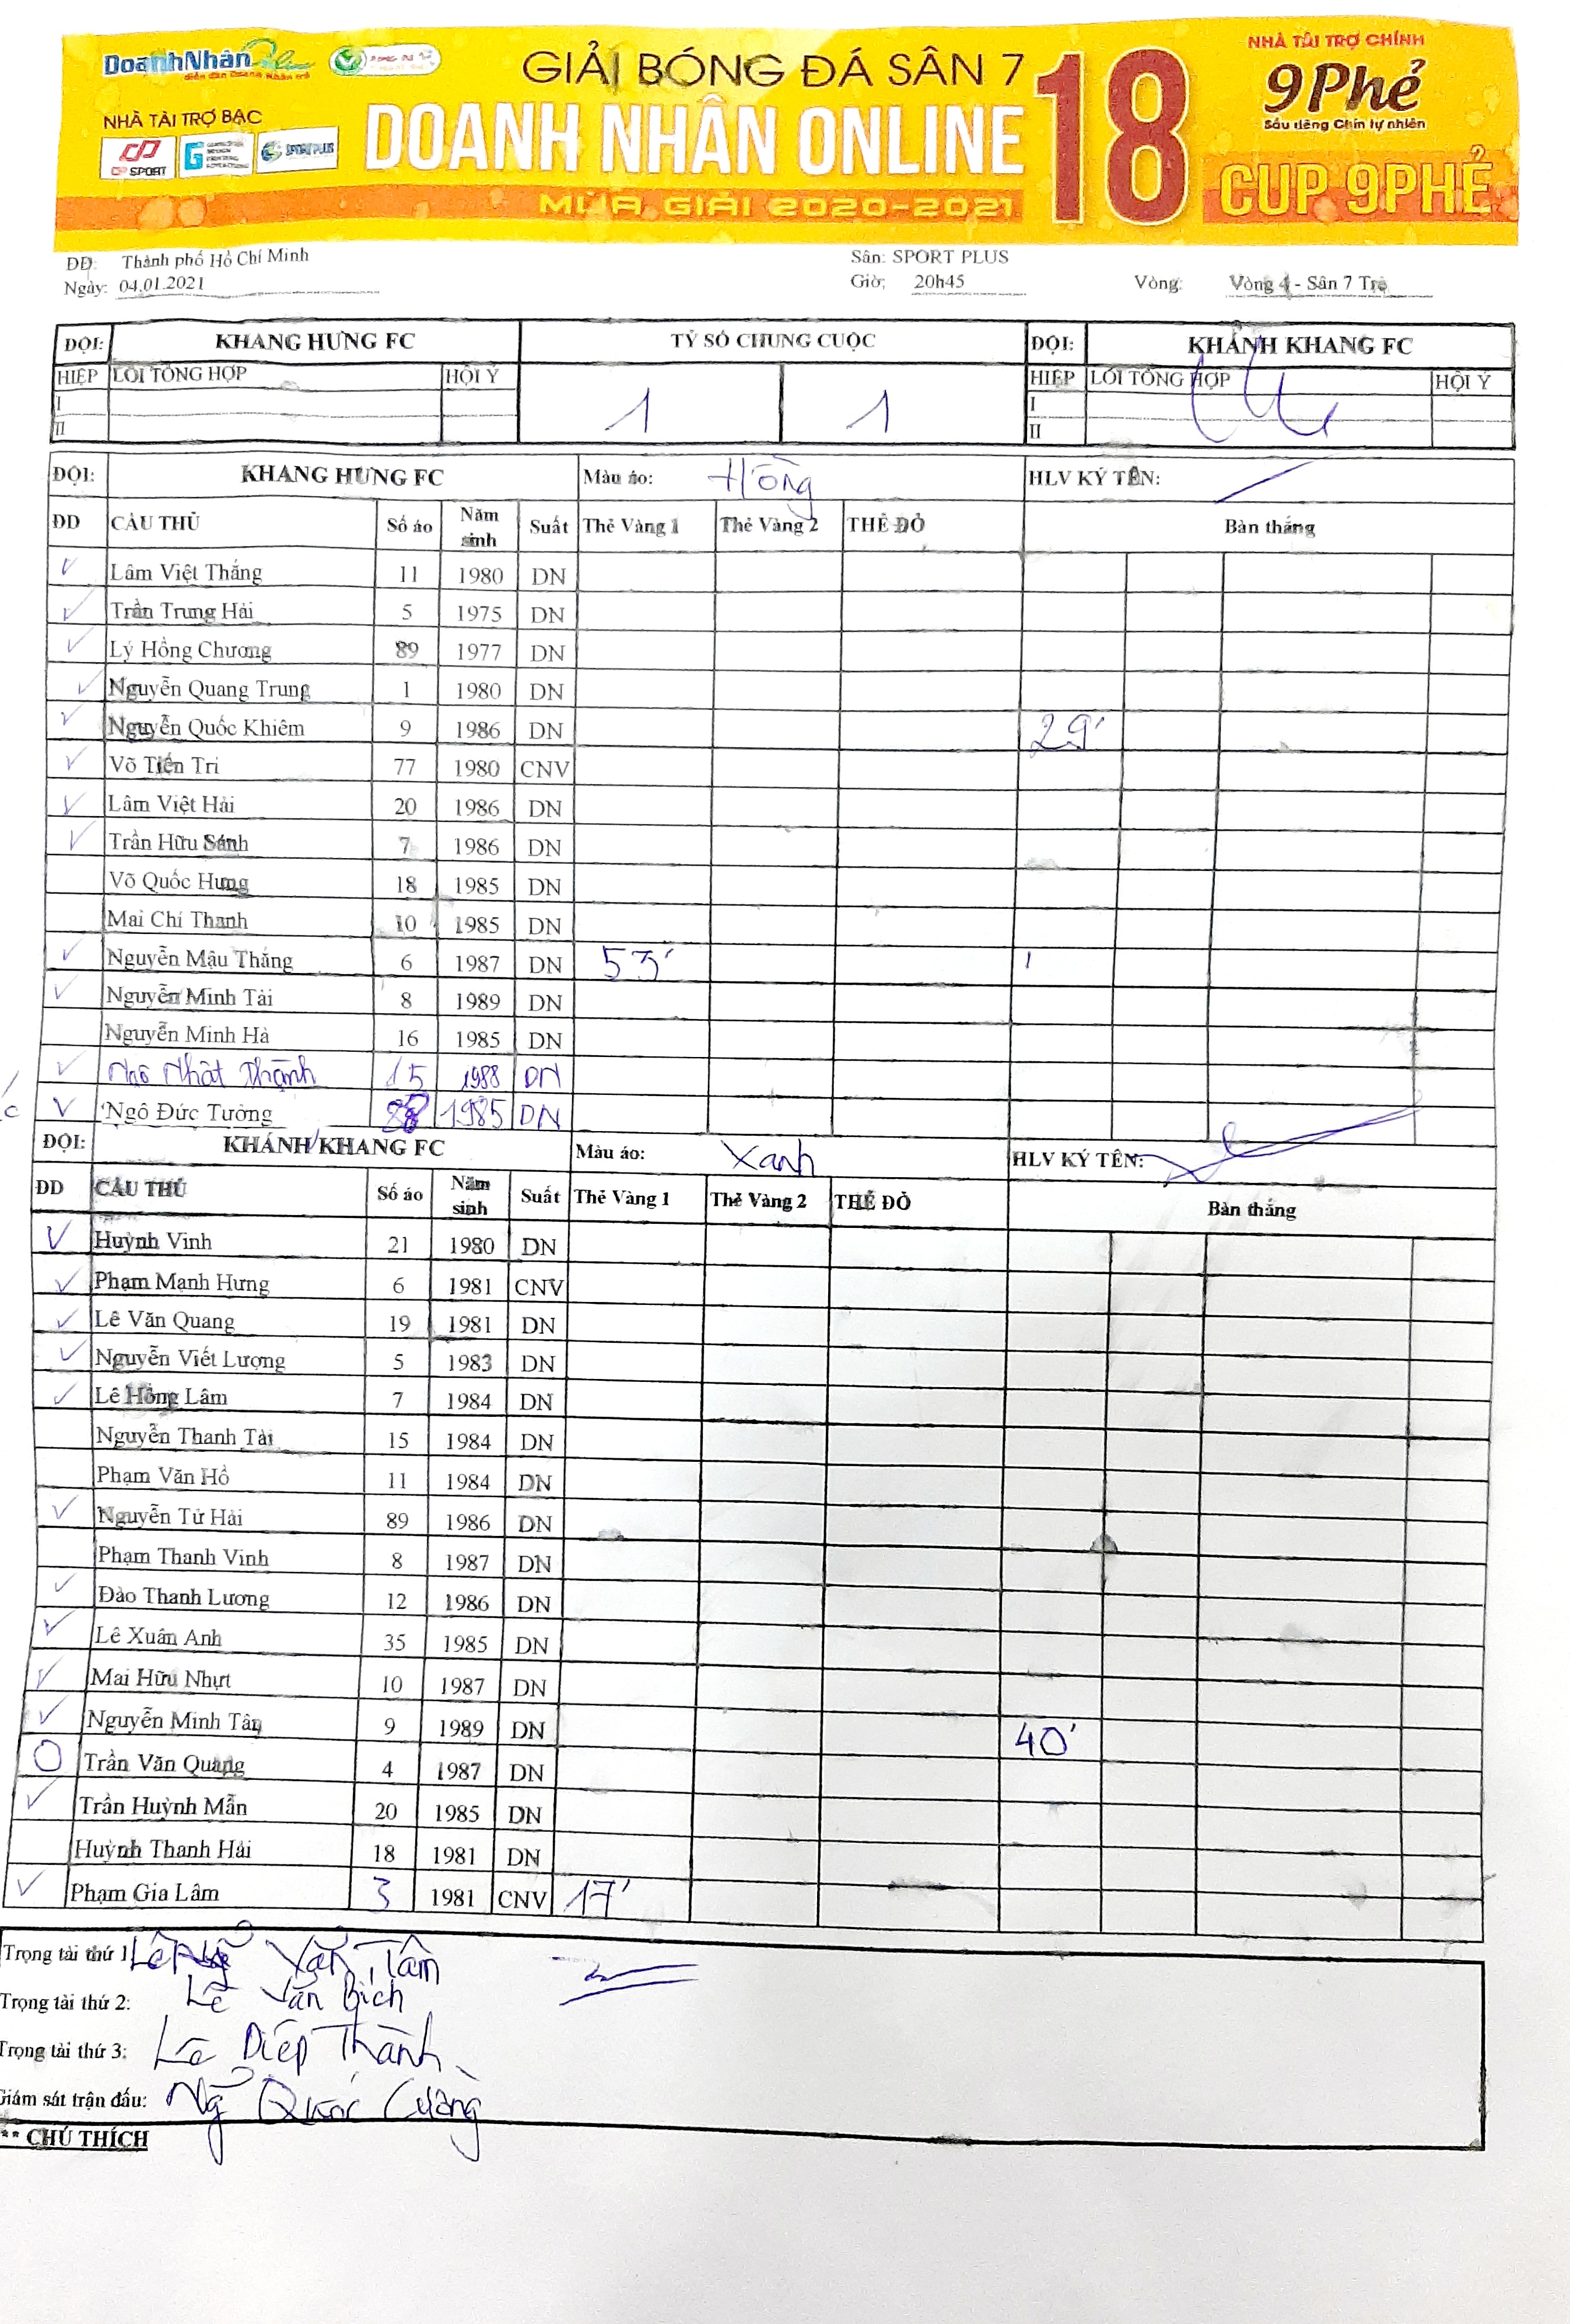 DoanhNhân Online
GIẢI BÓNG ĐÁ SÂN 7
DOANH NHÂN ONLINE
18
MÙA GIẢI 2020-2021
NHÀ TÀI TRỢ CHÍNH
9Phẻ
Sầu riêng Chín tự nhiên
CUP 9PHẺ
NHÀ TÀI TRỢ BẠC
CP SPORT
SPORT PLUS
ĐĐ: Thành phố Hồ Chí Minh
Sân: SPORT PLUS
Ngày: 04.01.2021 Giờ: 20h45 Vòng: Vòng 4 - Sân 7 Trẻ
ĐỘI: KHANG HƯNG FC TỶ SỐ CHUNG CUỘC ĐỘI: KHÁNH KHANG FC
HIỆP LỖI TỔNG HỢP HỘI Ý HIỆP LỖI TỔNG HỢP HỘI Ý
I 1 1 I
II II
ĐỘI: KHANG HƯNG FC Màu áo: Hồng HLV KÝ TÊN:
ĐD CẦU THỦ Số áo Năm sinh Suất Thẻ Vàng 1 Thẻ Vàng 2 THẺ ĐỎ Bàn thắng
Lâm Việt Thắng 11 1980 DN
Trần Trung Hải 5 1975 DN
Lý Hồng Chương 89 1977 DN
Nguyễn Quang Trung 1 1980 DN
Nguyễn Quốc Khiêm 9 1986 DN 29'
Võ Tiến Tri 77 1980 CNV
Lâm Việt Hải 20 1986 DN
Trần Hữu Sánh 7 1986 DN
Võ Quốc Hưng 18 1985 DN
Mai Chí Thanh 10 1985 DN
Nguyễn Mậu Thắng 6 1987 DN 53'
Nguyễn Minh Tài 8 1989 DN
Nguyễn Minh Hà 16 1985 DN
Ngô Nhất Thành 15 1988 DN
Ngô Đức Tường 1985 DN
ĐỘI: KHÁNH KHANG FC Màu áo: Xanh HLV KÝ TÊN:
ĐD CẦU THỦ Số áo Năm sinh Suất Thẻ Vàng 1 Thẻ Vàng 2 THẺ ĐỎ Bàn thắng
Huỳnh Vinh 21 1980 DN
Phạm Mạnh Hưng 6 1981 CNV
Lê Văn Quang 19 1981 DN
Nguyễn Viết Lượng 5 1983 DN
Lê Hồng Lâm 7 1984 DN
Nguyễn Thanh Tài 15 1984 DN
Phạm Văn Hổ 11 1984 DN
Nguyễn Tử Hải 89 1986 DN
Phạm Thanh Vinh 8 1987 DN
Đào Thanh Lương 12 1986 DN
Lê Xuân Anh 35 1985 DN
Mai Hữu Nhựt 10 1987 DN
Nguyễn Minh Tân 9 1989 DN 40'
Trần Văn Quang 4 1987 DN
Trần Huỳnh Mẫn 20 1985 DN
Huỳnh Thanh Hải 18 1981 DN
Phạm Gia Lâm 3 1981 CNV 17'
Trọng tài thứ 1 Văn Tâm
Trọng tài thứ 2: Lê Văn Bích
Trọng tài thứ 3: Lê Diệp Thành
Giám sát trận đấu: Ng Quốc Cường
** CHÚ THÍCH